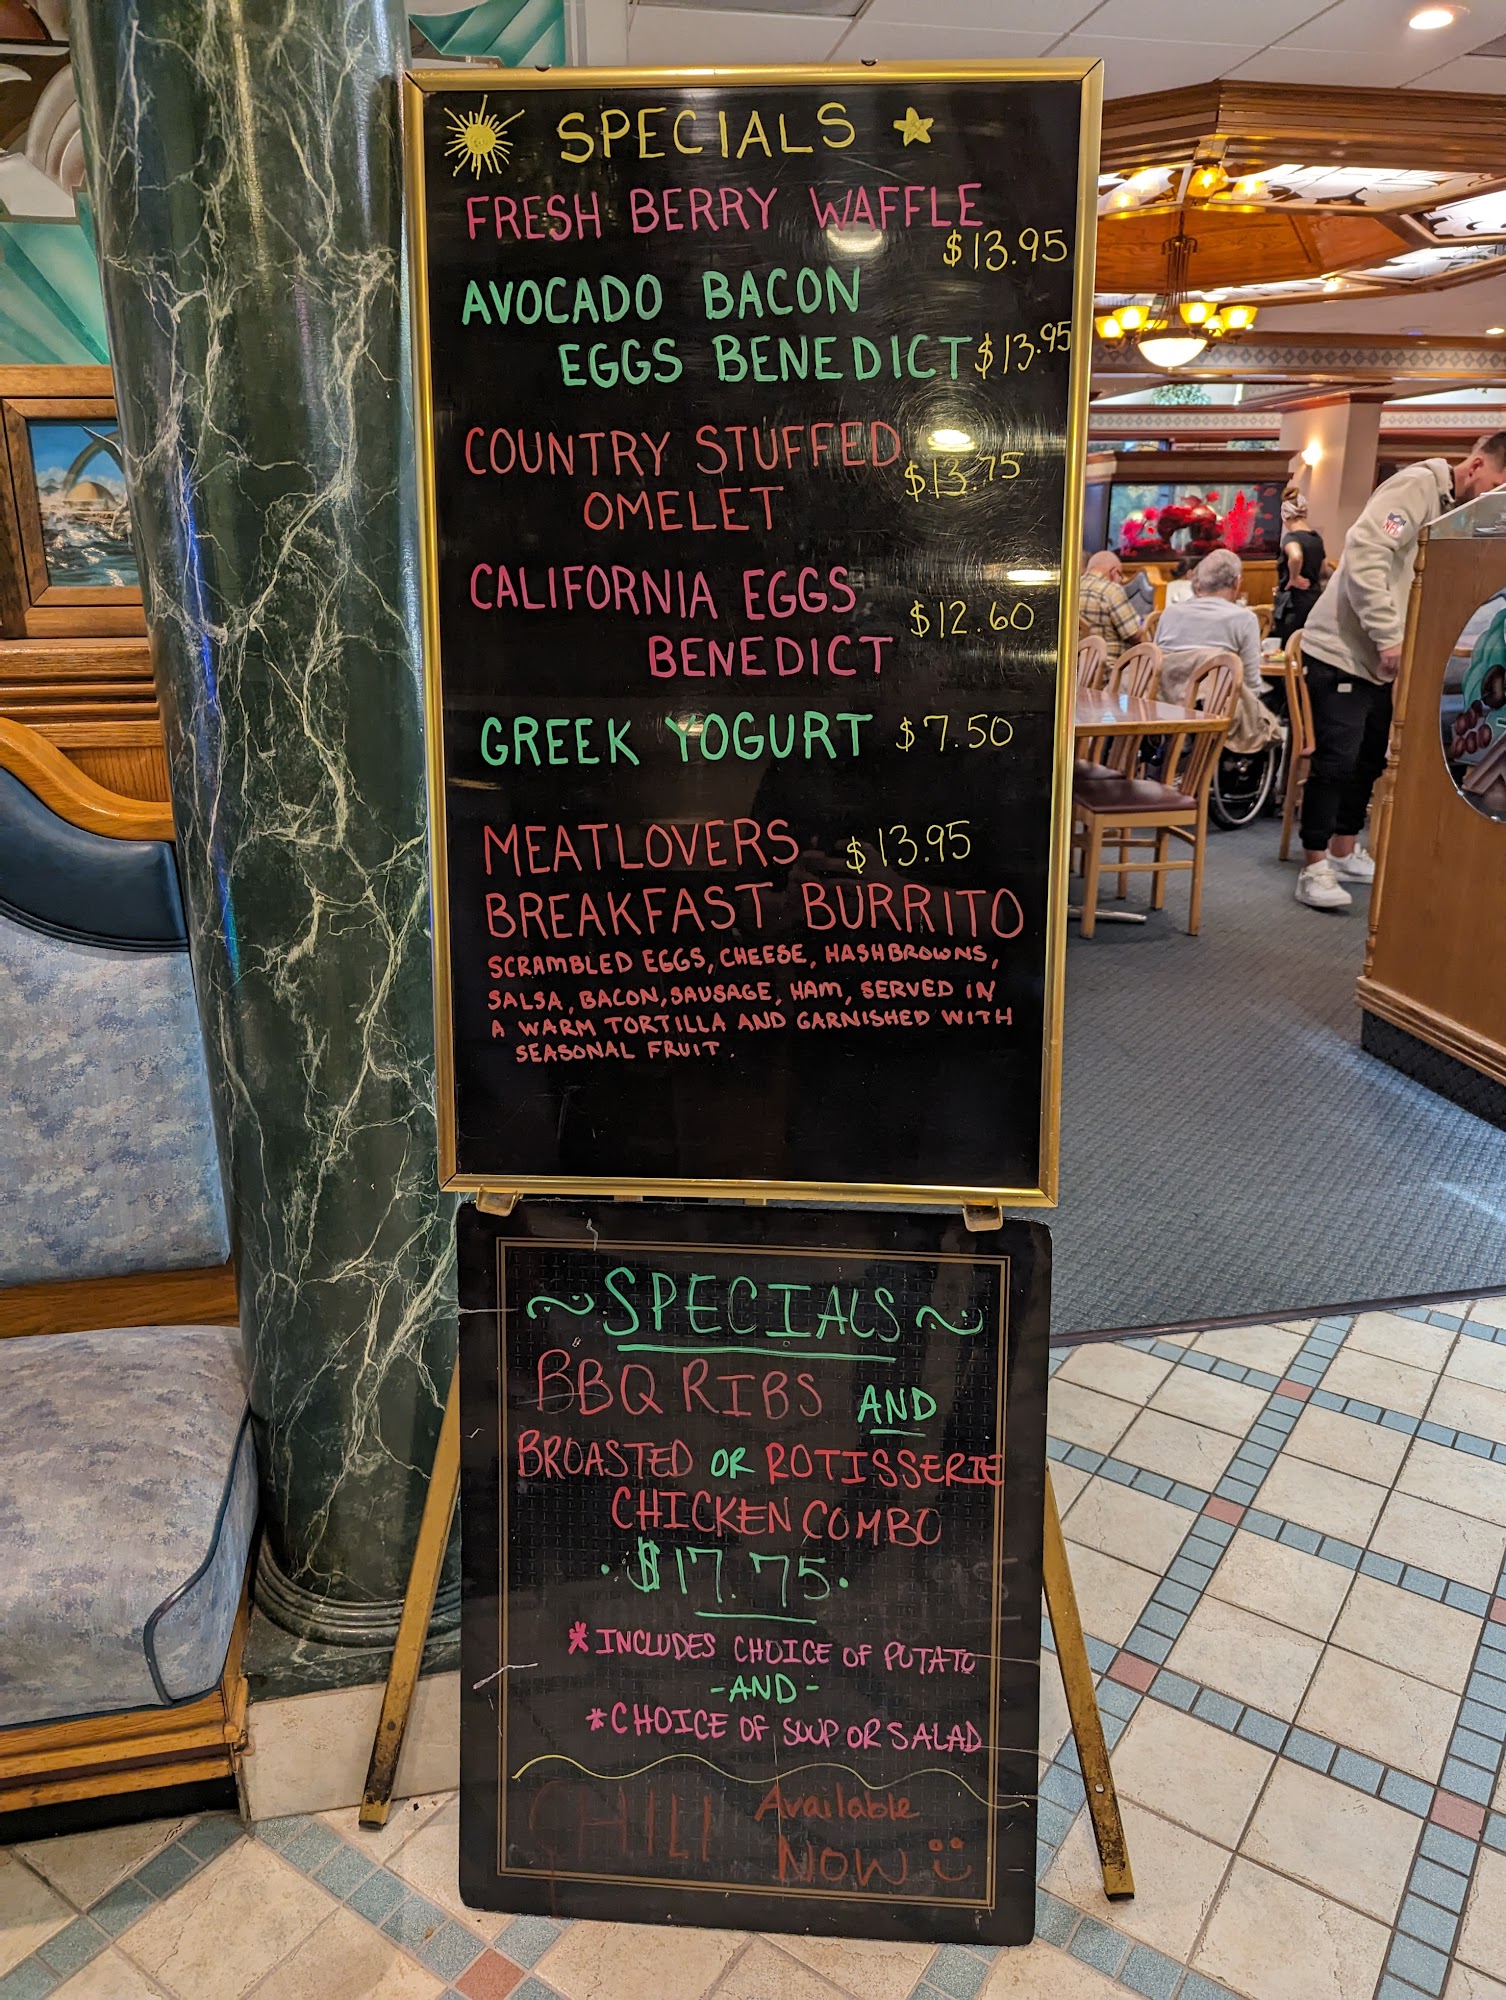 SPECIALS
FRESH BERRY WAFFLE
$13.95
AVOCADO BACON
EGGS BENEDICT $13.95
COUNTRY STUFFED
$13.75
OMELET
CALIFORNIA EGGS
$12.60
BENEDICT
GREEK YOGURT $7.50
MEATLOVERS $13.95
BREAKFAST BURRITO
SCRAMBLED EGGS, CHEESE, HASHBROWNS,
SALSA, BACON, SAUSAGE, HAM, SERVED IN
A WARM TORTILLA AND GARNISHED WITH
SEASONAL FRUIT.
~SPECIALS~
BBQ RIBS AND
BROASTED OR ROTISSERIE
CHICKEN COMBO
·$17.75·
*INCLUDES CHOICE OF POTATO
-AND-
*CHOICE OF SOUP OR SALAD
CHILI Available
NOW
NFL